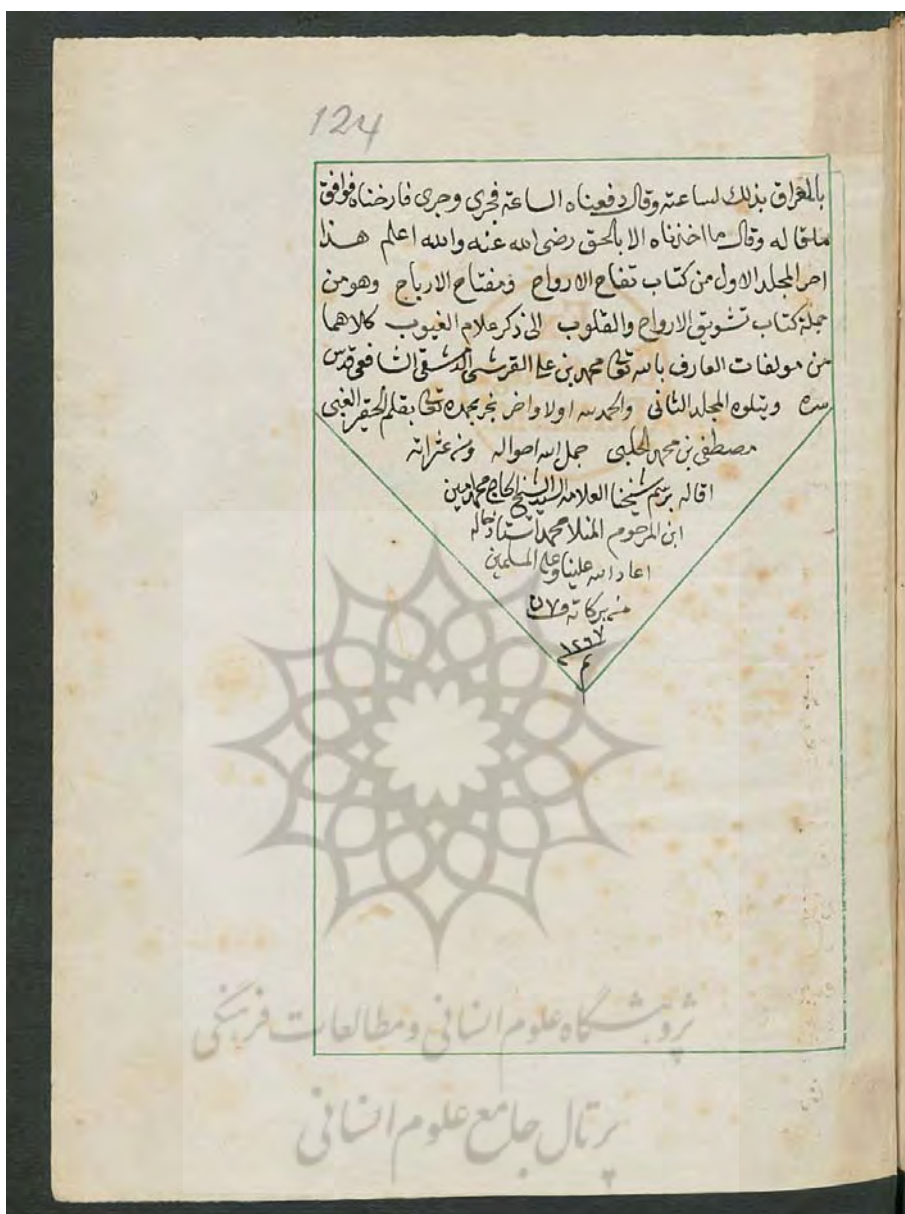 124
بالعراق بذلك لساعته وقال دفعناه الساعة فجرى وجرى فارخناه فوافق
ماقاله وقال ما اخذناه الا بالحق رضى الله عنه والله اعلم هذا
اخر المجلد الاول من كتاب تفاح الارواح ومفتاح الارباح وهو من
جملة كتاب تشويق الارواح والقلوب الى ذكر علام الغيوب كلاهما
من مولفات العارف بالله تعالى محمد بن على القرشى الدمشقى الشافعى قدس
سره ويتلوه المجلد الثانى والحمد لله اولا واخر بحمده تعالى بقلم الحقير الغبى
مصطفى بن محمد الحلبى جمل الله احواله ومن عثراته
اقاله برسم شيخنا العلامه السيد الشيخ الحاج محمد امين
ابن المرحوم المنلا محمد استاذ
اعاد الله علينا وعلى المسلمين
من بركاته
١٢٦٧
م
پژوهشگاه علوم انسانی و مطالعات فرهنگی
پرتال جامع علوم انسانی